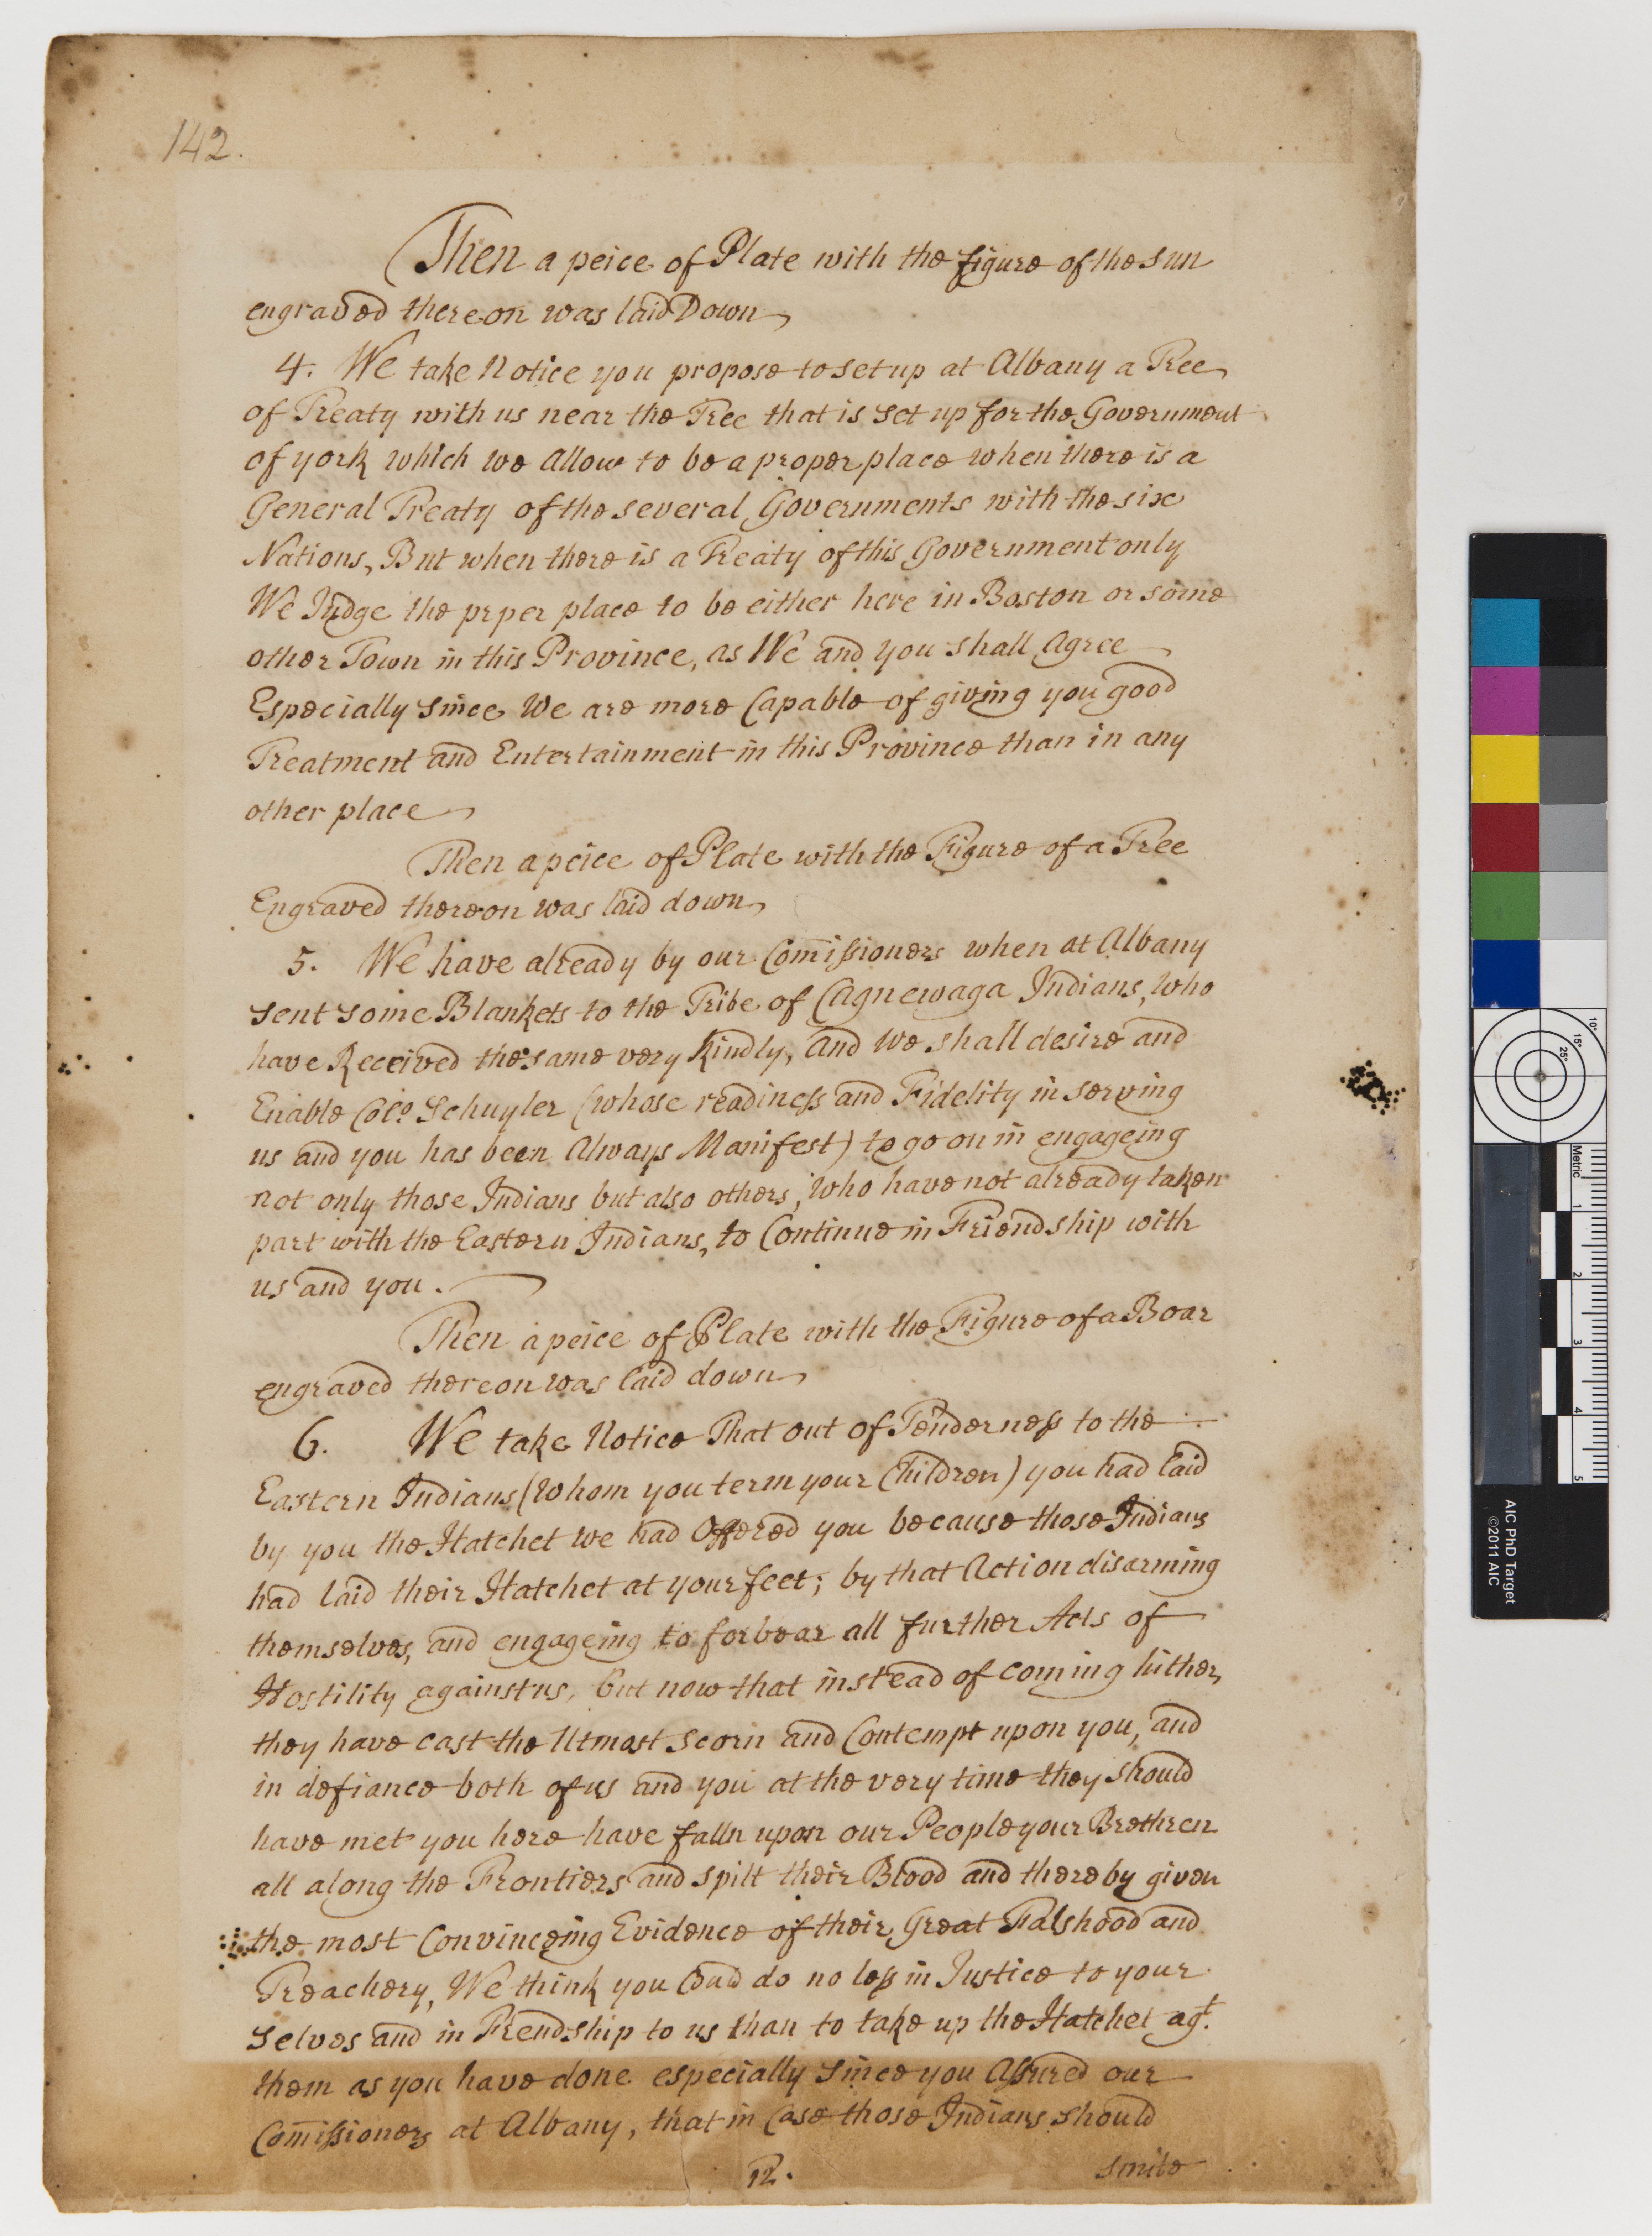 142.
Then a peice of Plate with the figure of the Sun
engraved thereon was laid Down
4. We take Notice you propose to set up at Albany a Tree
of Treaty with us near the Tree that is set up for the Government
of york which we Allow to be a proper place when there is a
General Treaty of the several Governments with the six
Nations, But when there is a Treaty of this Government only
We Judge the prper place to be either here in Boston or some
other Town in this Province, as We and you shall Agree
Especially since We are more Capable of giving you good
Treatment and Entertainment in this Province than in any
other place
Then a peice of Plate with the Figure of a Tree
Engraved thereon was laid down
5. We have already by our Com̄issioners when at Albany
sent some Blankets to the Tribe of Cagnewaga Indians, who
have Received the same very Kindly, and We shall desire and
Enable Colo. Schuyler (whose readiness and Fidelity in serving
us and you has been Always Manifest) to go on in engageing
not only those Indians but also others, who have not already taken
part with the Eastern Indians, to Continue in Friendship with
us and you.
Then a peice of Plate with the Figure of a Boar
engraved thereon was laid down
6. We take Notice That out of Tenderness to the
Eastern Indians (Whom you term your Children) you had laid
by you the Hatchet we had Offered you because those Indians
had laid their Hatchet at your feet; by that Action disarming
themselves, and engageing to forbear all further Acts of
Hostility against us, but now that instead of coming hither,
they have cast the Utmost Scorn and Contempt upon you, and
in defiance both of us and you at the very time they should
have met you here have falln upon our People your Brethren
all along the Frontiers and spilt their Blood and thereby given
the most Convinceing Evidence of their Great Falshood and
Treachery, We think you Coud do no less in Justice to your
selves and in Frendship to us than to take up the Hatchet agt.
them as you have done especially since you Assured our
Com̄issioners at Albany, that in Case those Indians should
12.
smite
10°
15°
25°
Metric
1
2
3
4
5
AIC PhD Target
©2011 AIC